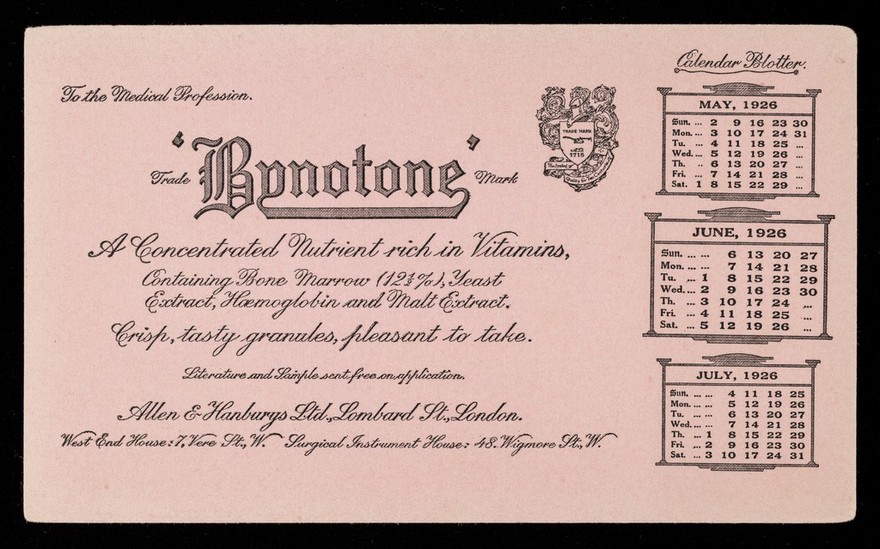 To the Medical Profession.
Trade 'Bynotone' Mark
TRADE MARK
ESTD
1715
A Concentrated Nutrient rich in Vitamins,
Containing Bone Marrow (12½%), Yeast
Extract, Hæmoglobin and Malt Extract.
Crisp, tasty granules, pleasant to take.
Literature and Sample sent free on application.
Allen & Hanburys Ltd., Lombard St., London.
West End House: 7, Vere St., W. Surgical Instrument House: 48, Wigmore St., W.
Calendar Blotter.
MAY, 1926
Sun. ... 2 9 16 23 30
Mon. ... 3 10 17 24 31
Tu. ... 4 11 18 25 ...
Wed. ... 5 12 19 26 ...
Th. ... 6 13 20 27 ...
Fri. ... 7 14 21 28 ...
Sat. 1 8 15 22 29 ...
JUNE, 1926
Sun. ... ... 6 13 20 27
Mon. ... ... 7 14 21 28
Tu. ... 1 8 15 22 29
Wed. ... 2 9 16 23 30
Th. ... 3 10 17 24 ...
Fri. ... 4 11 18 25 ...
Sat. ... 5 12 19 26 ...
JULY, 1926
Sun. ... ... 4 11 18 25
Mon. ... ... 5 12 19 26
Tu. ... ... 6 13 20 27
Wed. ... ... 7 14 21 28
Th. ... 1 8 15 22 29
Fri. ... 2 9 16 23 30
Sat. ... 3 10 17 24 31